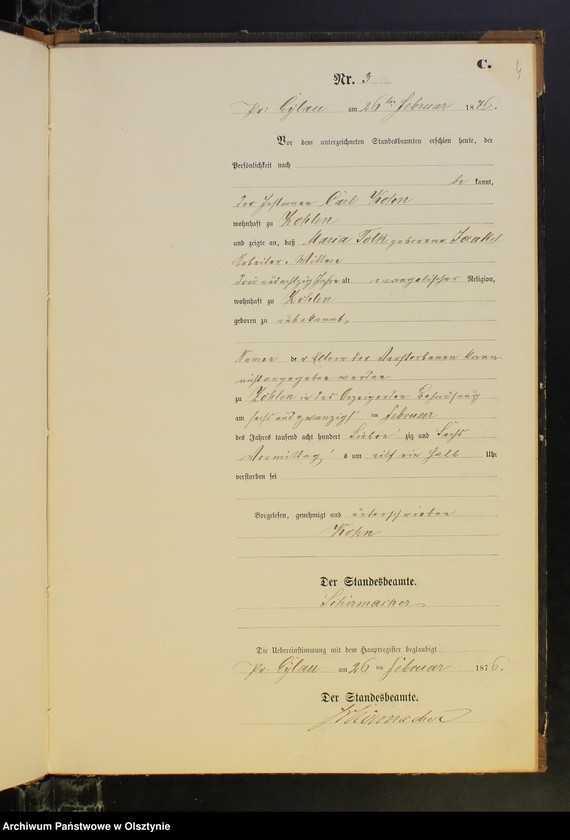 C.
4
Nr. 3
Pr. Eylau am 26ten Februar 1876.
Vor dem unterzeichneten Standesbeamten erschien heute, der
Persönlichkeit nach
be kannt,
der Carl Kohn
wohnhaft zu Zohlen
und zeigte an, daß Maria Tolk geborene
Arbeiter-Wittwe
drei und achtzig Jahre alt evangelischer Religion,
wohnhaft zu Zohlen
geboren zu unbekannt,
Namen der Eltern der Verstorbenen kann
nicht angegeben werden
zu Zohlen in des Anzeigenden Behausung
am sechs und zwanzigsten Februar
des Jahres tausend acht hundert Sieben zig und Sechs
Vormittag s um elf ein halb Uhr
verstorben sei
Vorgelesen, genehmigt und unterschrieben
Kohn
Der Standesbeamte.
Schirmacher
Die Uebereinstimmung mit dem Hauptregister beglaubigt
Pr. Eylau am 26 ten Februar 1876.
Der Standesbeamte.
Schirmacher
Archiwum Państwowe w Olsztynie